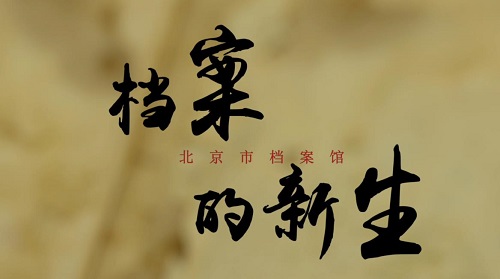 档案
北京市档案馆
的新生